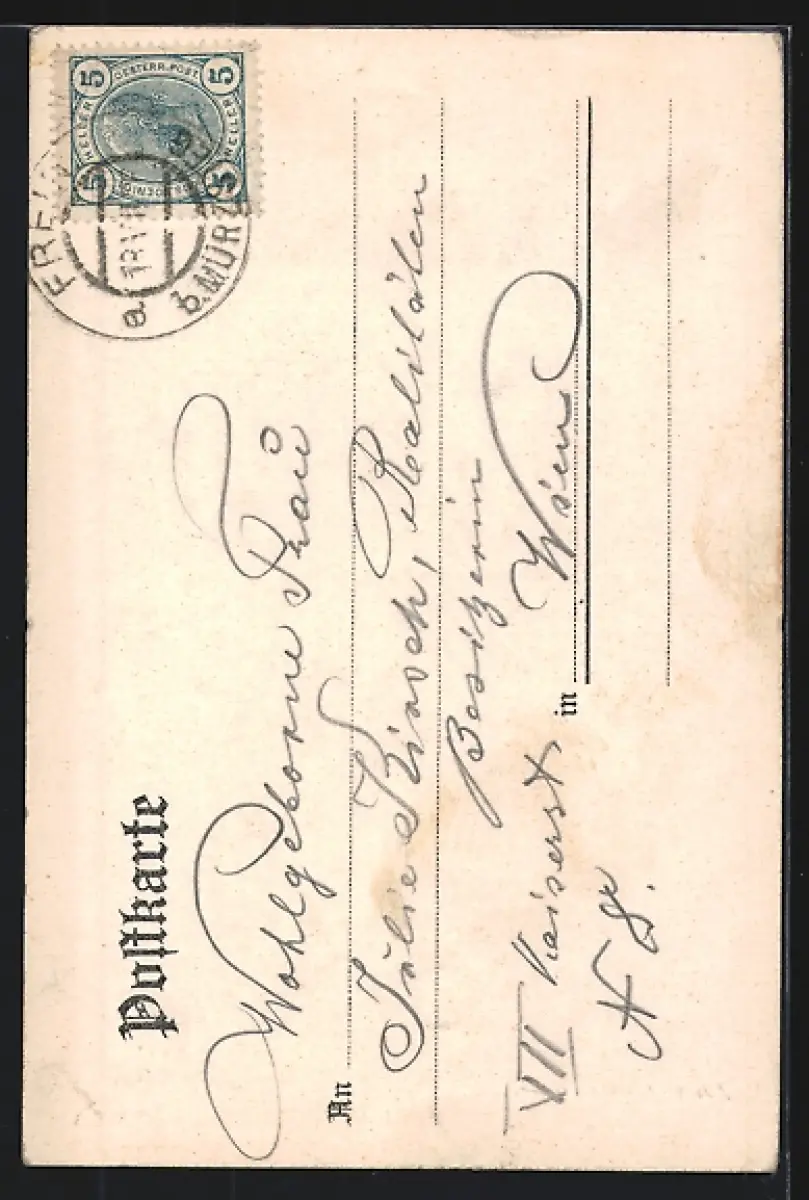 Postkarte
5 OESTERR. POST 5
HELLER HELLER
5 5
FREI
a. b. MÜRZ
18.V
Wohlgeborne Frau
An
Julie Kirsch, Realitäten
Besitzerin
in Wien
VII Kaiserst
N 8.